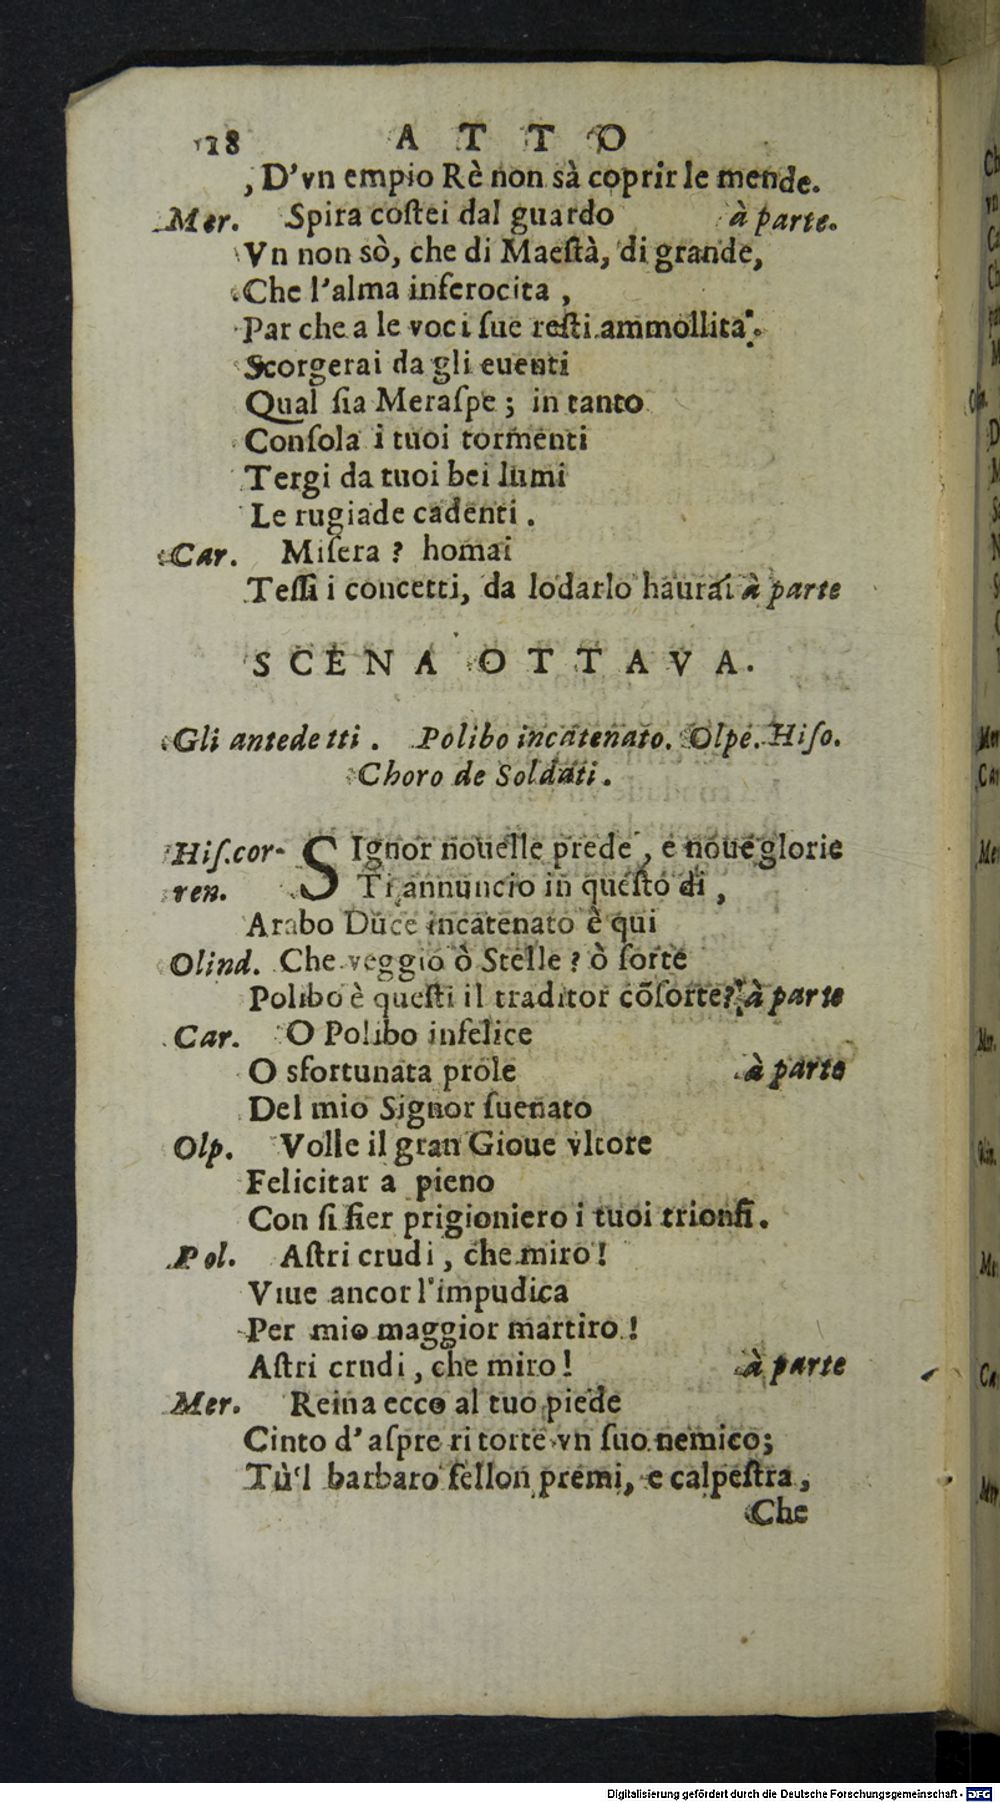 18 ATTO
D'vn empio Rè non sà coprir le mende.
Mer. Spira coſtei dal guardo à parte.
Vn non sò, che di Maeſtà, di grande,
Che l'alma inferocita,
Par che a le voci ſue reſti ammollita.
Scorgerai da gli euenti
Qual ſia Meraſpe; in tanto
Conſola i tuoi tormenti
Tergi da tuoi bei lumi
Le rugiade cadenti.
Car. Miſera? homai
Teſſi i concetti, da lodarlo haurai à parte
SCENA OTTAVA.
Gli antedetti. Polibo incatenato. Olpe. Hiſo.
Choro de Soldati.
Hiſ.cor- SIgnor nouelle prede, e noue glorie
ren. Ti annuncio in queſto di,
Arabo Duce incatenato è qui
Olind. Che veggio ò Stelle? ò ſorte
Polibo è queſti il traditor cõſorte? à parte
Car. O Polibo infelice
O sfortunata prole à parte
Del mio Signor ſuenato
Olp. Volle il gran Gioue vltore
Felicitar a pieno
Con ſi fier prigioniero i tuoi trionfi.
Pol. Aſtri crudi, che miro!
Viue ancor l'impudica
Per mio maggior martiro!
Aſtri crudi, che miro! à parte
Mer. Reina ecco al tuo piede
Cinto d'aſpre ritorte vn ſuo nemico;
Tù'l barbaro fellon premi, e calpeſtra,
Che
Digitalisierung gefördert durch die Deutsche Forschungsgemeinschaft - DFG